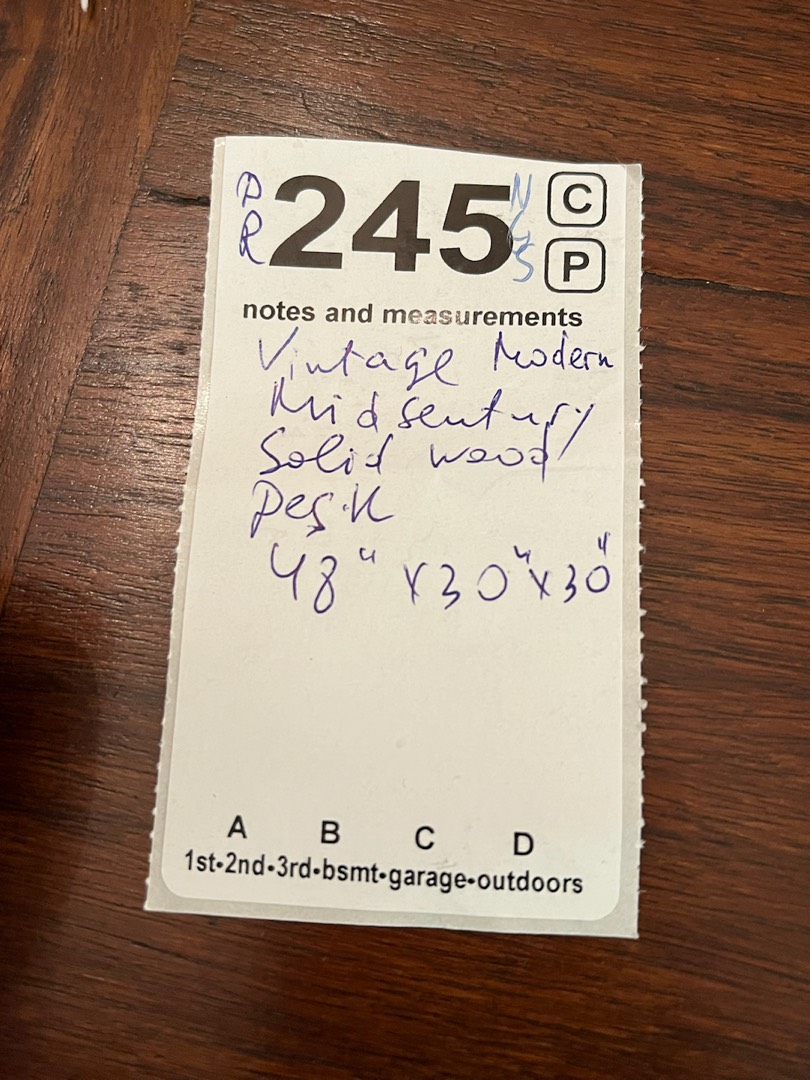 DR 245 NGS C
P
notes and measurements
Vintage Modern
Midsentury
Solid wood
Desk
48" x 30" x 30"
A B C D
1st•2nd•3rd•bsmt•garage•outdoors